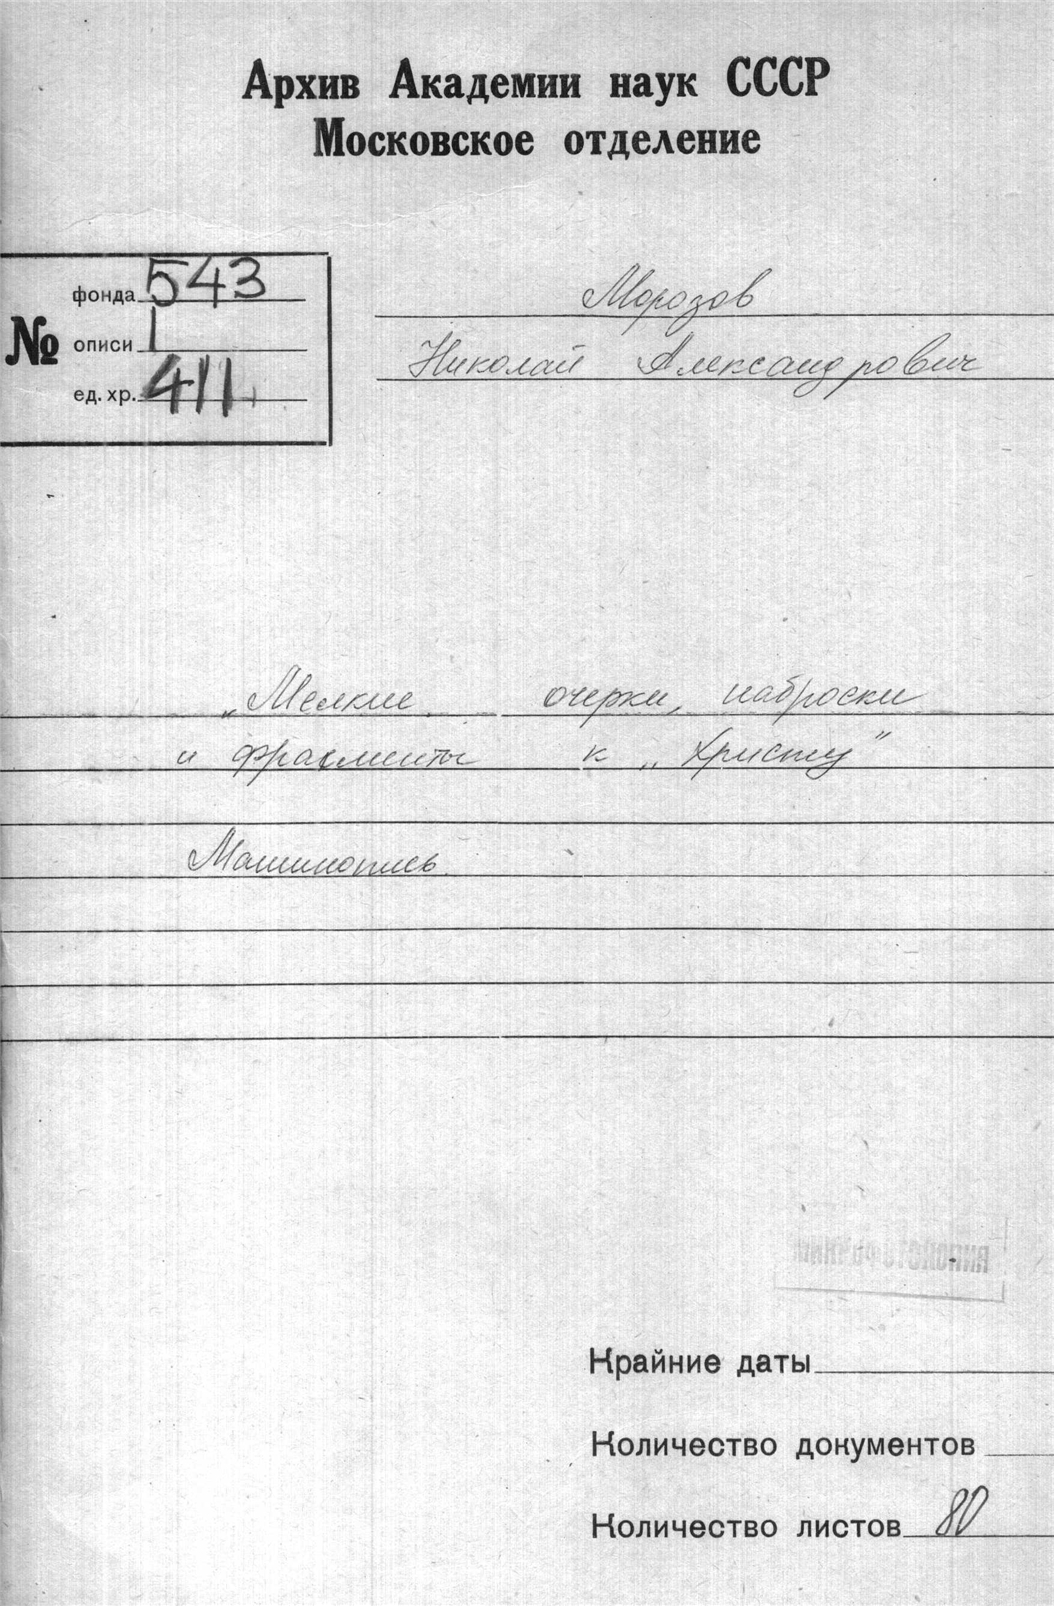 Архив Академии наук СССР
Московское отделение
№
фонда 543
описи 1
ед. хр. 411
Морозов
Николай Александрович
„Мелкие очерки, наброски
и фрагменты к „Христу"
Машинопись.
Крайние даты
Количество документов
Количество листов 80